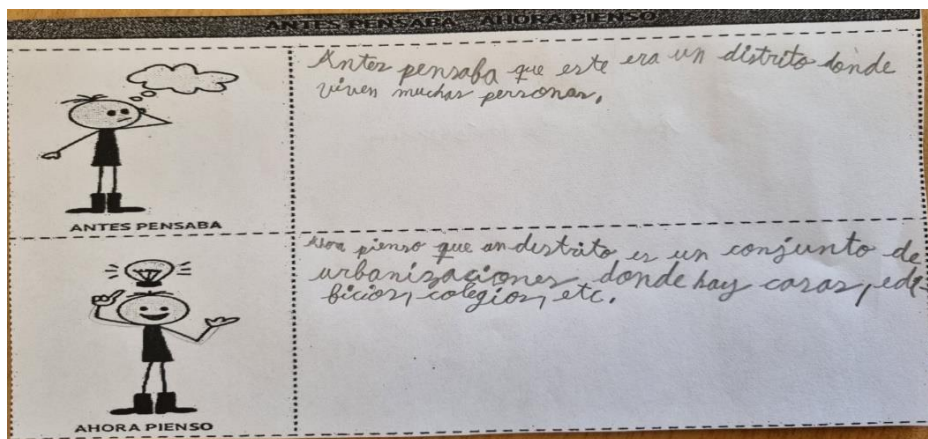 ANTES PENSABA - AHORA PIENSO
Antes pensaba que este era un distrito donde
viven muchas personas.
ANTES PENSABA
Aora pienso que un distrito es un conjunto de
urbanizaciones donde hay casas, edi-
ficios, colegios, etc.
AHORA PIENSO